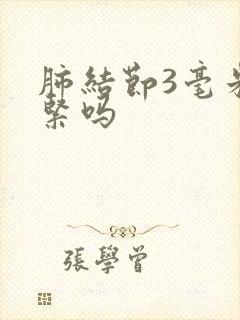 肺結節3毫米
緊嗎
張學曾